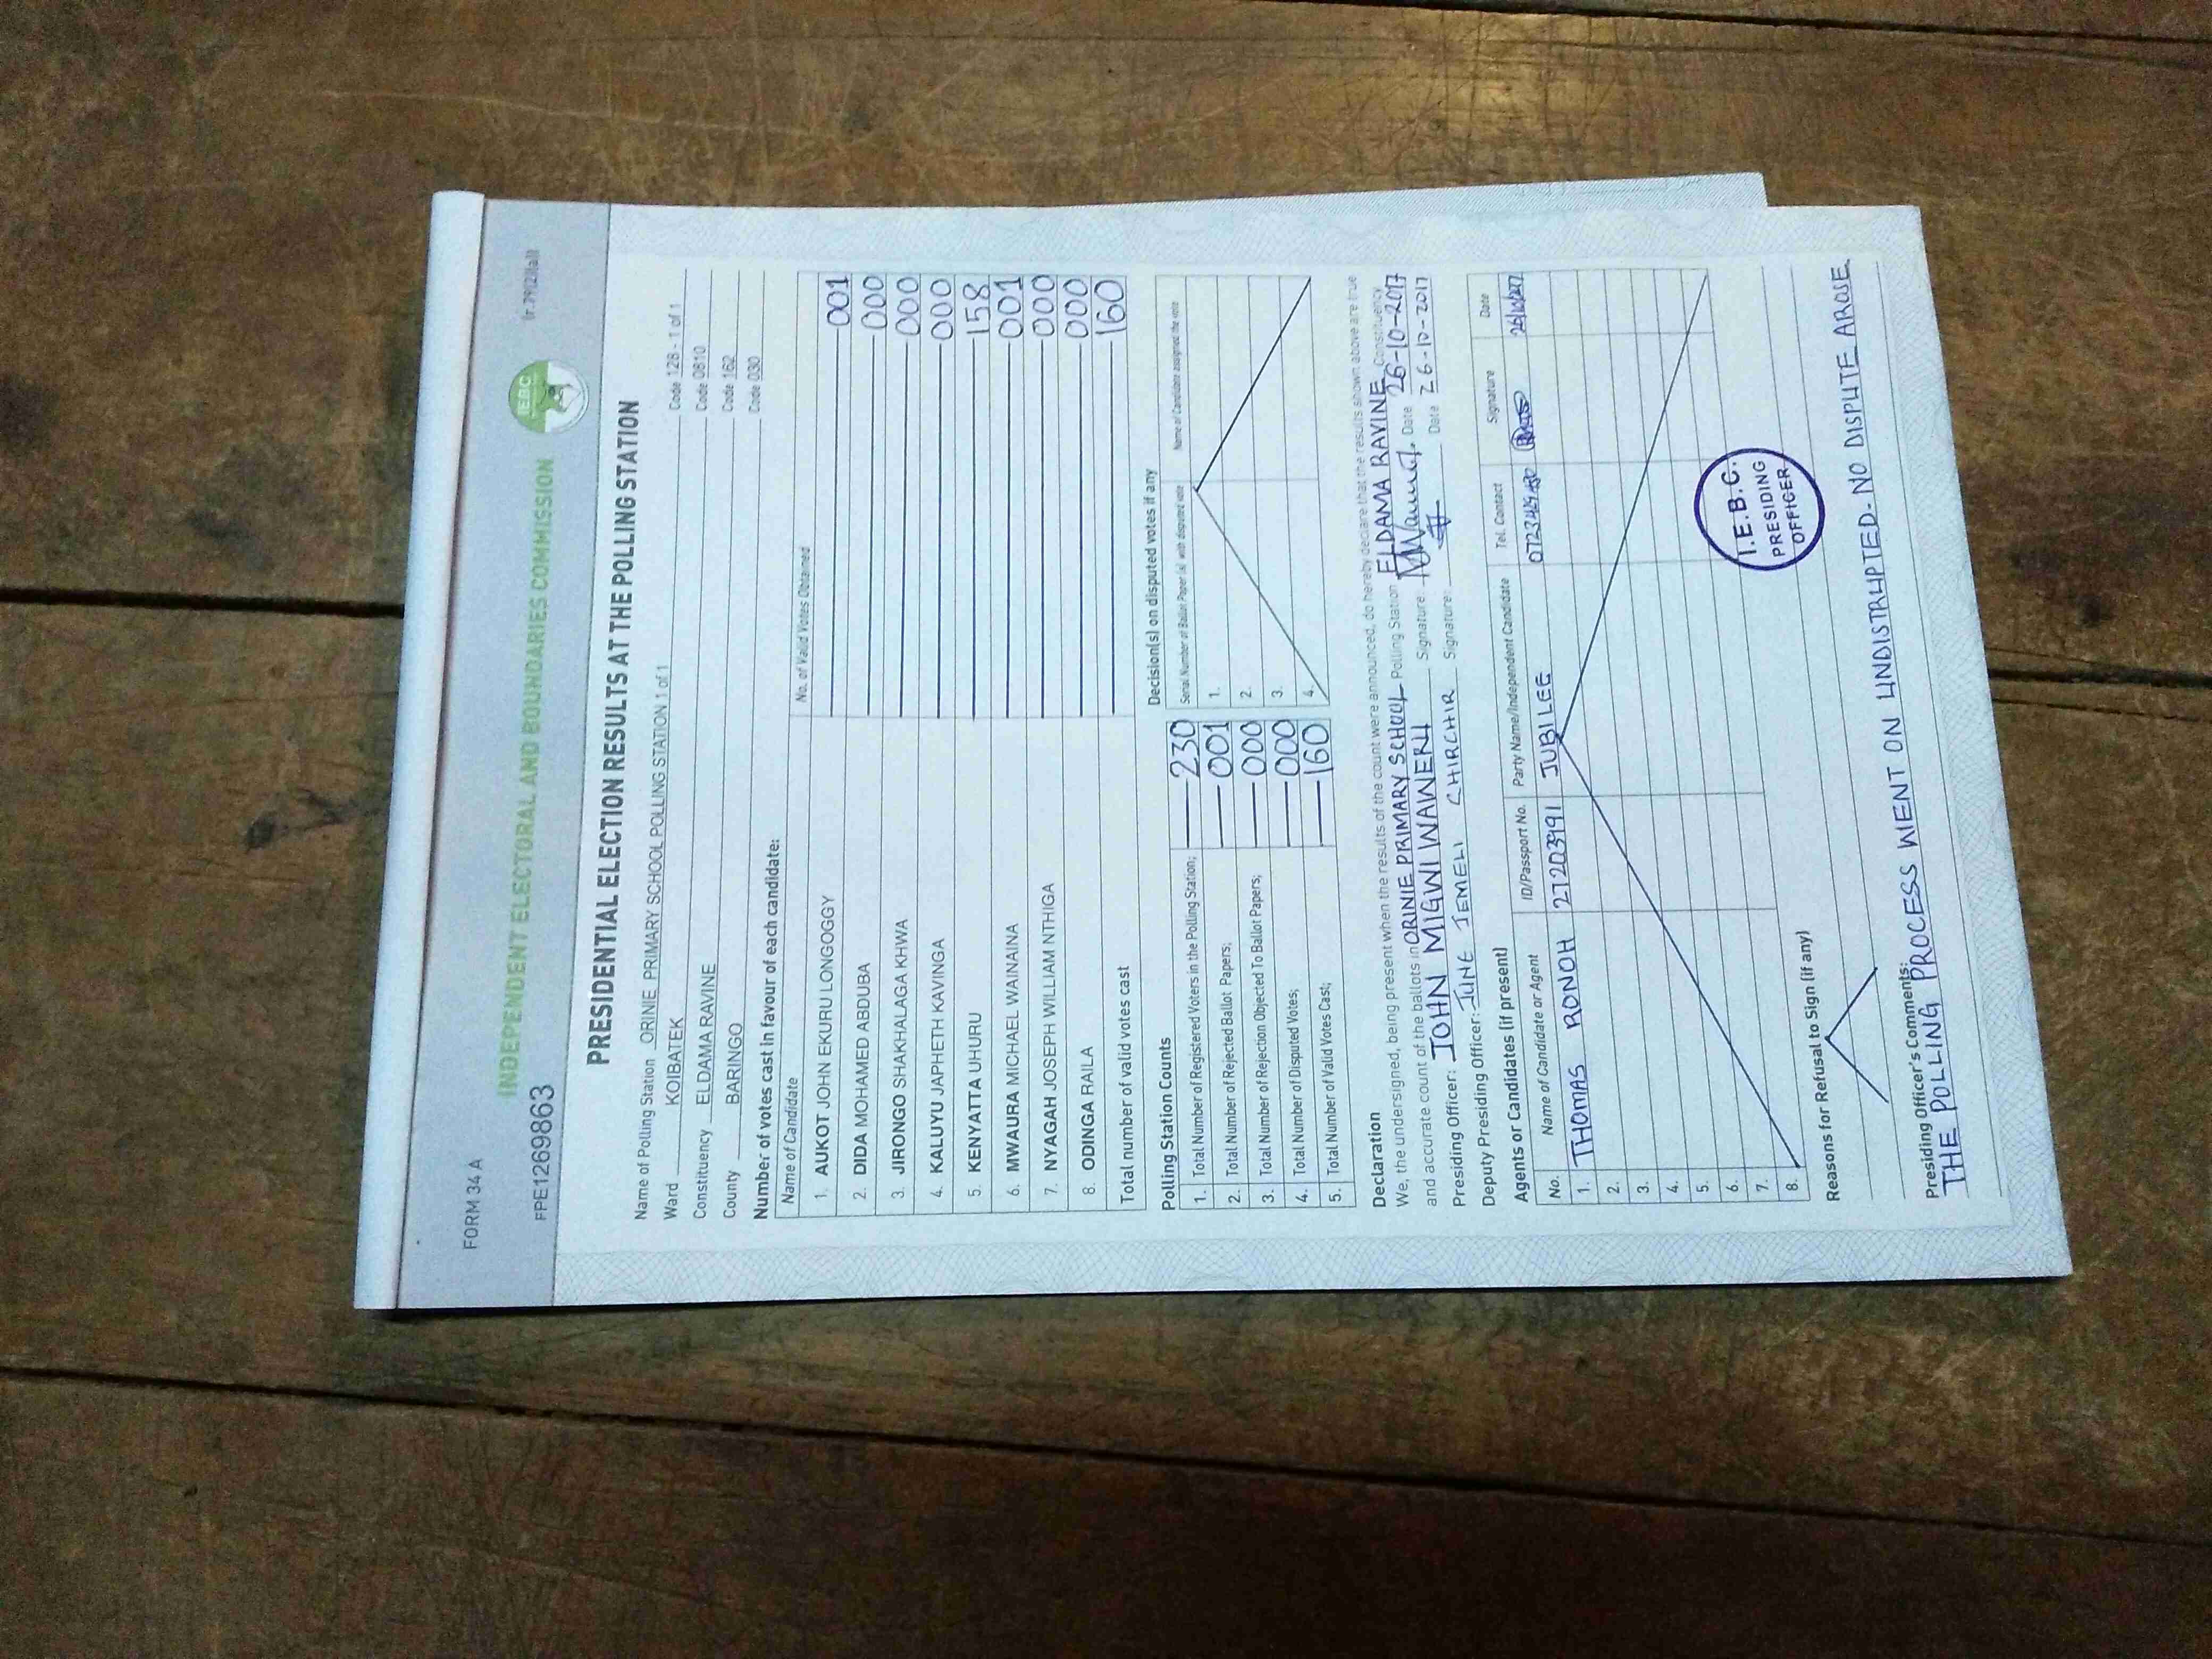 FORM 34 A
INDEPENDENT ELECTORAL AND BOUNDARIES COMMISSION
IEBC
FPE1269863
PRESIDENTIAL ELECTION RESULTS AT THE POLLING STATION
Name of Polling Station ORINIE PRIMARY SCHOOL POLLING STATION 1 of 1 Code 128 - 1 of 1
Ward KOIBATEK Code 0810
Constituency ELDAMA RAVINE Code 162
County BARINGO Code 030
Number of votes cast in favour of each candidate:
Name of Candidate No. of Valid Votes Obtained
1. AUKOT JOHN EKURU LONGOGGY 001
2. DIDA MOHAMED ABDUBA 000
3. JIRONGO SHAKHALAGA KHWA 000
4. KALUYU JAPHETH KAVINGA 000
5. KENYATTA UHURU 158
6. MWAURA MICHAEL WAINAINA 001
7. NYAGAH JOSEPH WILLIAM NTHIGA 000
8. ODINGA RAILA 000
Total number of valid votes cast 160
Polling Station Counts
1. Total Number of Registered Voters in the Polling Station; 230
2. Total Number of Rejected Ballot Papers; 001
3. Total Number of Rejection Objected To Ballot Papers; 000
4. Total Number of Disputed Votes; 000
5. Total Number of Valid Votes Cast; 160
Decision(s) on disputed votes if any
Serial Number of Ballot Paper (s) with disputed vote Name of Candidate assigned the vote
1.
2.
3.
4.
Declaration
We, the undersigned, being present when the results of the count were announced, do hereby declare that the results shown above are true
and accurate count of the ballots in ORINIE PRIMARY SCHOOL Polling Station ELDAMA RAVINE Constituency
Presiding Officer: JOHN MIGWI WAWERU Signature Date 26-10-2017
Deputy Presiding Officer: JUNE JEMELI CHIRCHIR Signature Date 26-10-2017
Agents or Candidates (if present)
No. Name of Candidate or Agent ID/Passport No. Party Name/Independent Candidate Tel. Contact Signature Date
1. THOMAS RONOH 27203991 JUBILEE
2.
3.
4.
5.
6.
7.
8.
I.E.B.C.
PRESIDING
OFFICER
Reasons for Refusal to Sign (if any)
Presiding Officer's Comments:
THE POLLING PROCESS WENT ON UNDISTRUPTED-NO DISPUTE AROSE.